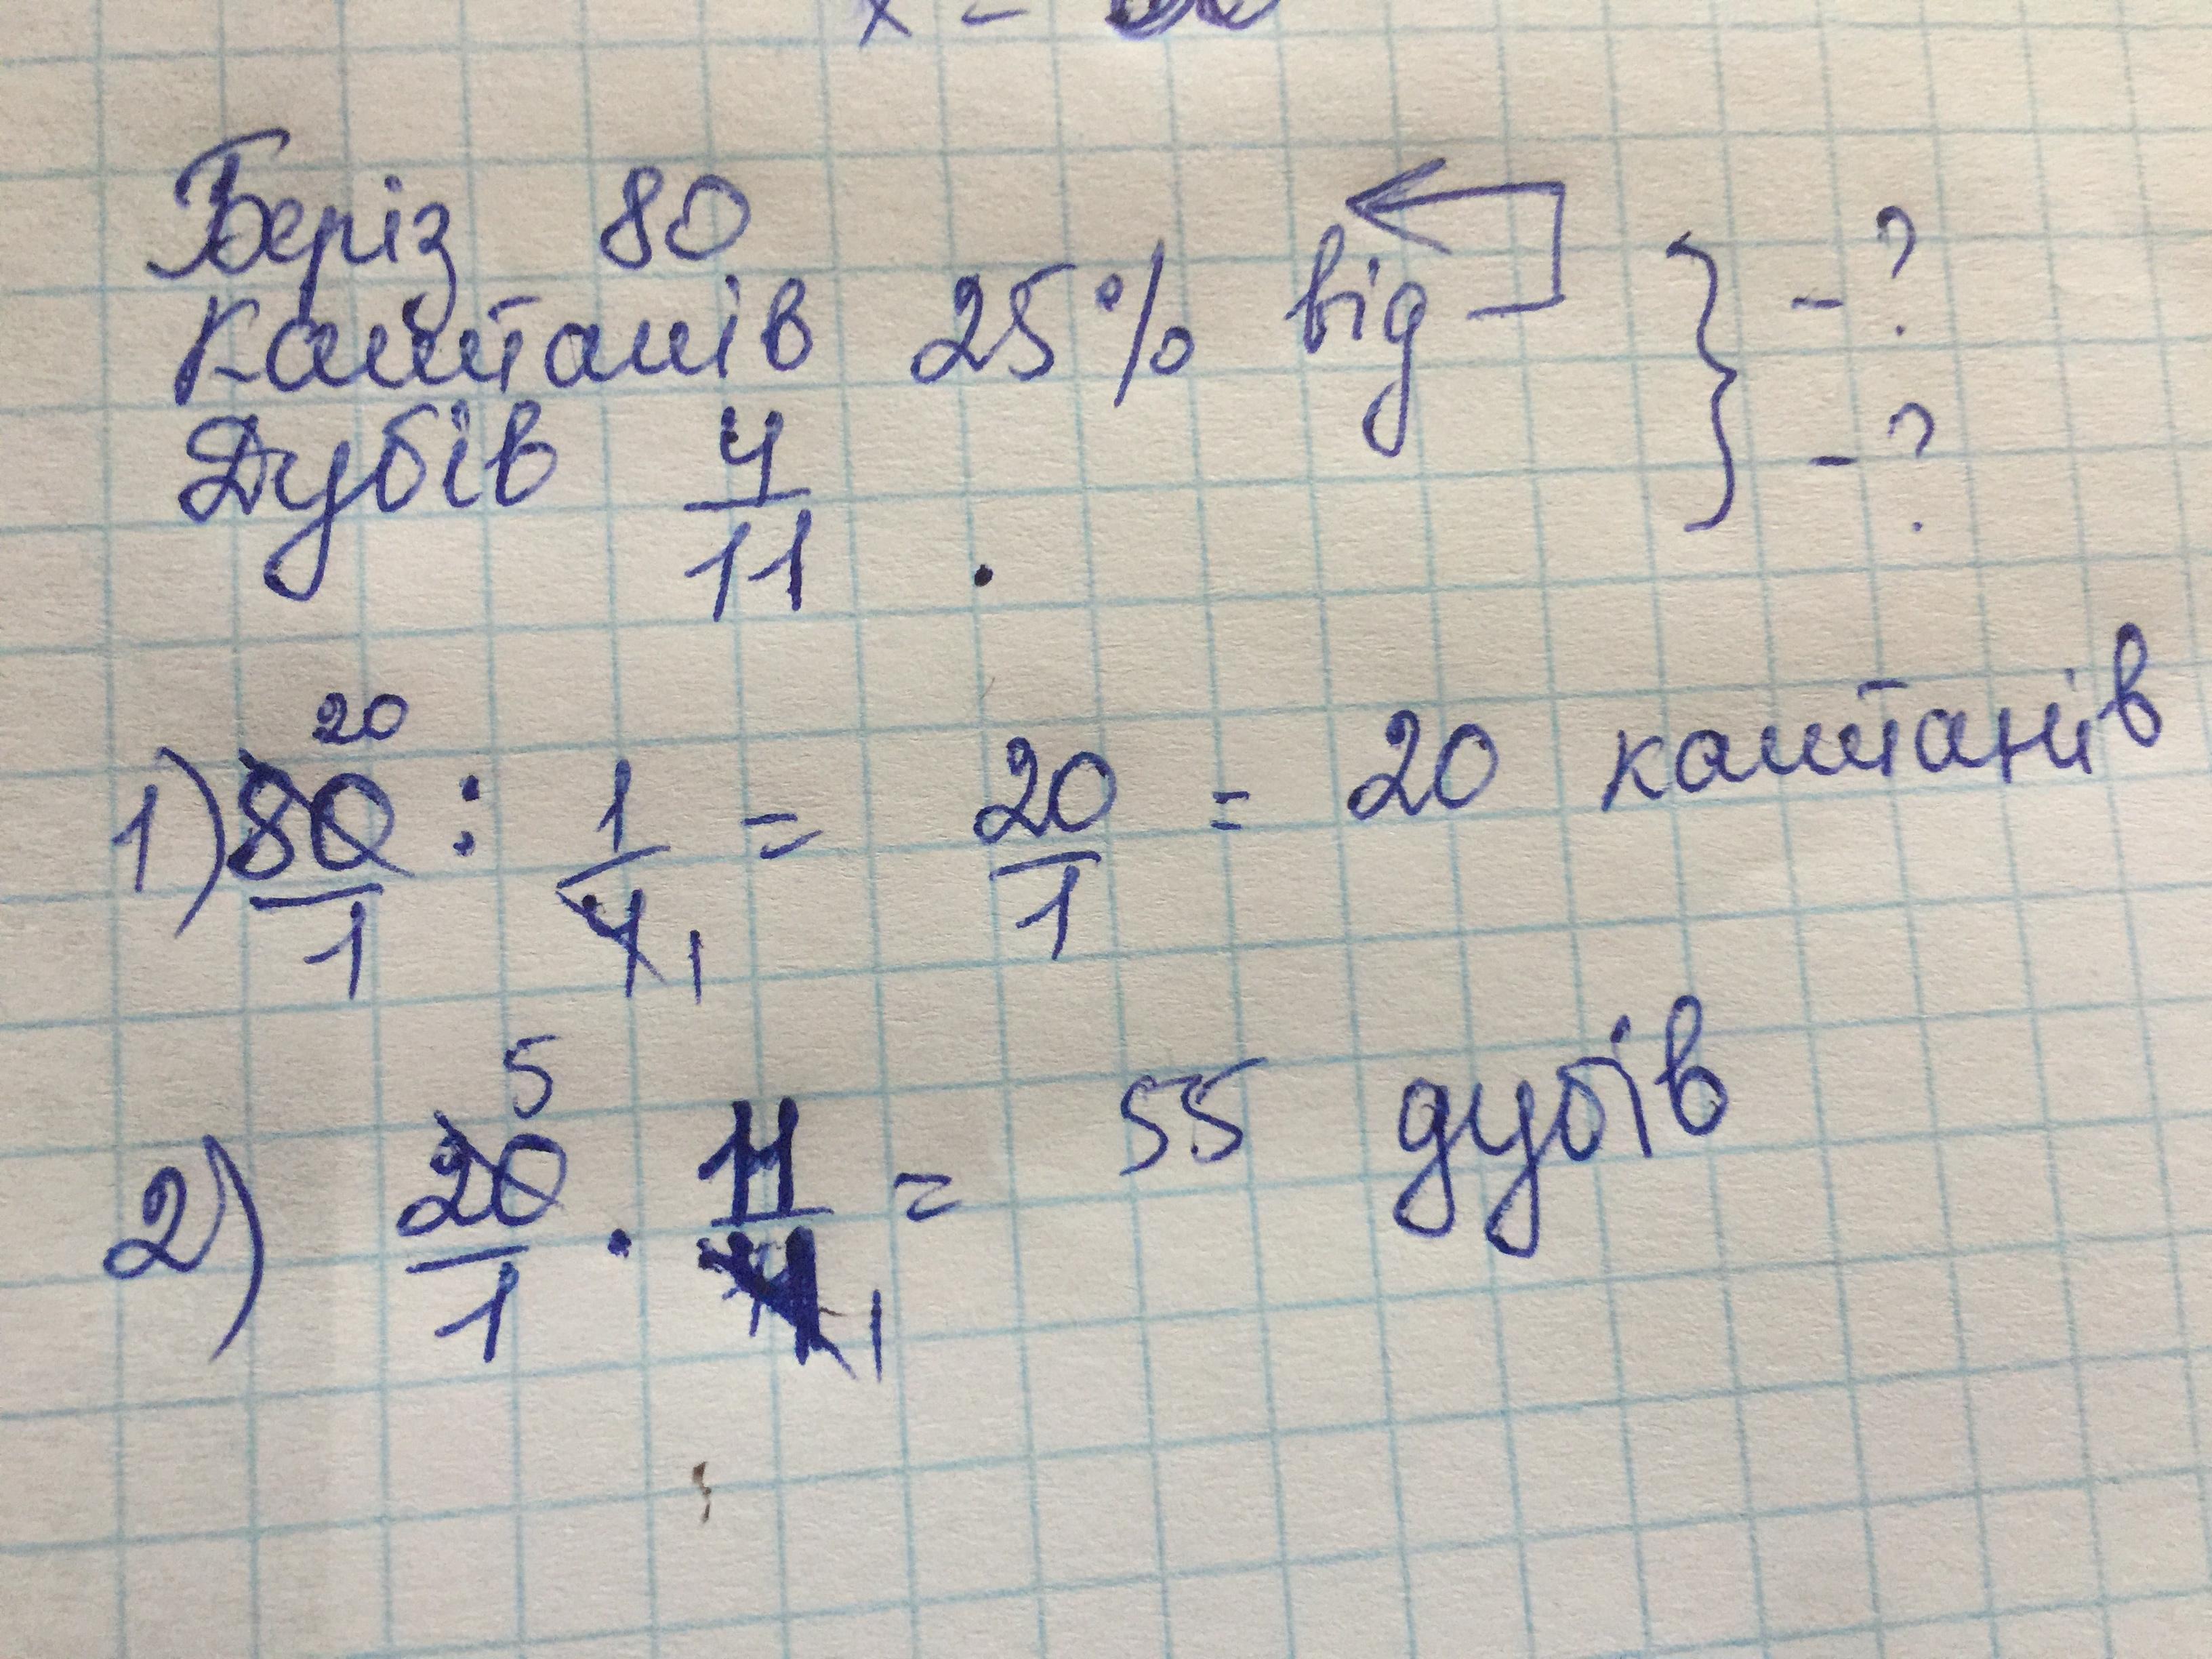 x =
Беріз 80
Каштанів 25% від } - ?
Дубів 4/11 . - ?
1) 80/1 20 : 1/4 1 = 20/1 = 20 каштанів
2) 20/1 5 · 11/4 1 = 55 дубів